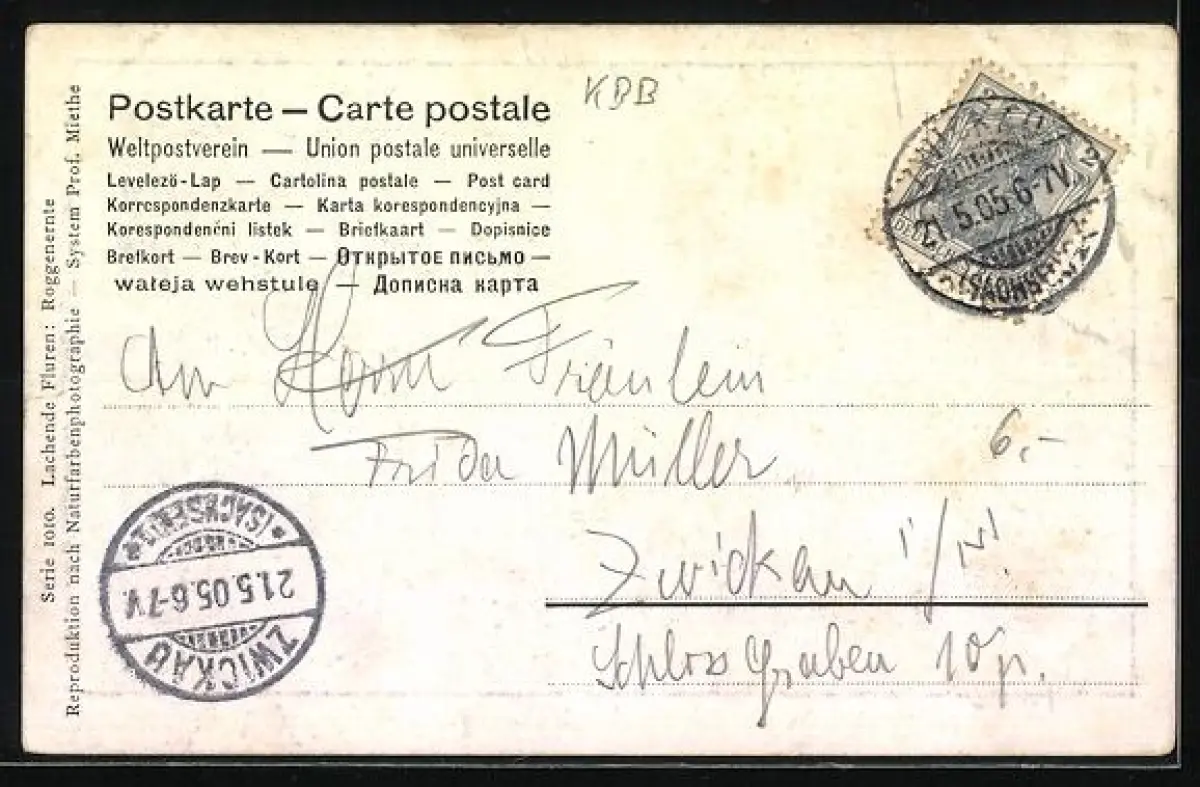 Postkarte — Carte postale
Weltpostverein — Union postale universelle
Levelezö-Lap — Cartolina postale — Post card
Korrespondenzkarte — Karta korespondencyjna —
Korespondenčni listek — Briefkaart — Dopisnice
Brefkort — Brev-Kort — Открытое письмо —
waŀeja wehstule — Дописна карта
KBB
Serie 1010. Lachende Fluren: Roggenernte
Reproduktion nach Naturfarbenphotographie — System Prof. Miethe
2
5.05.6-7V.
(SACHSEN)
Fräulein
Frida Müller
6.-
Zwickau i/
Schlossgraben 10
(SACHSEN)
21.5.05.6-7V.
ZWICKAU